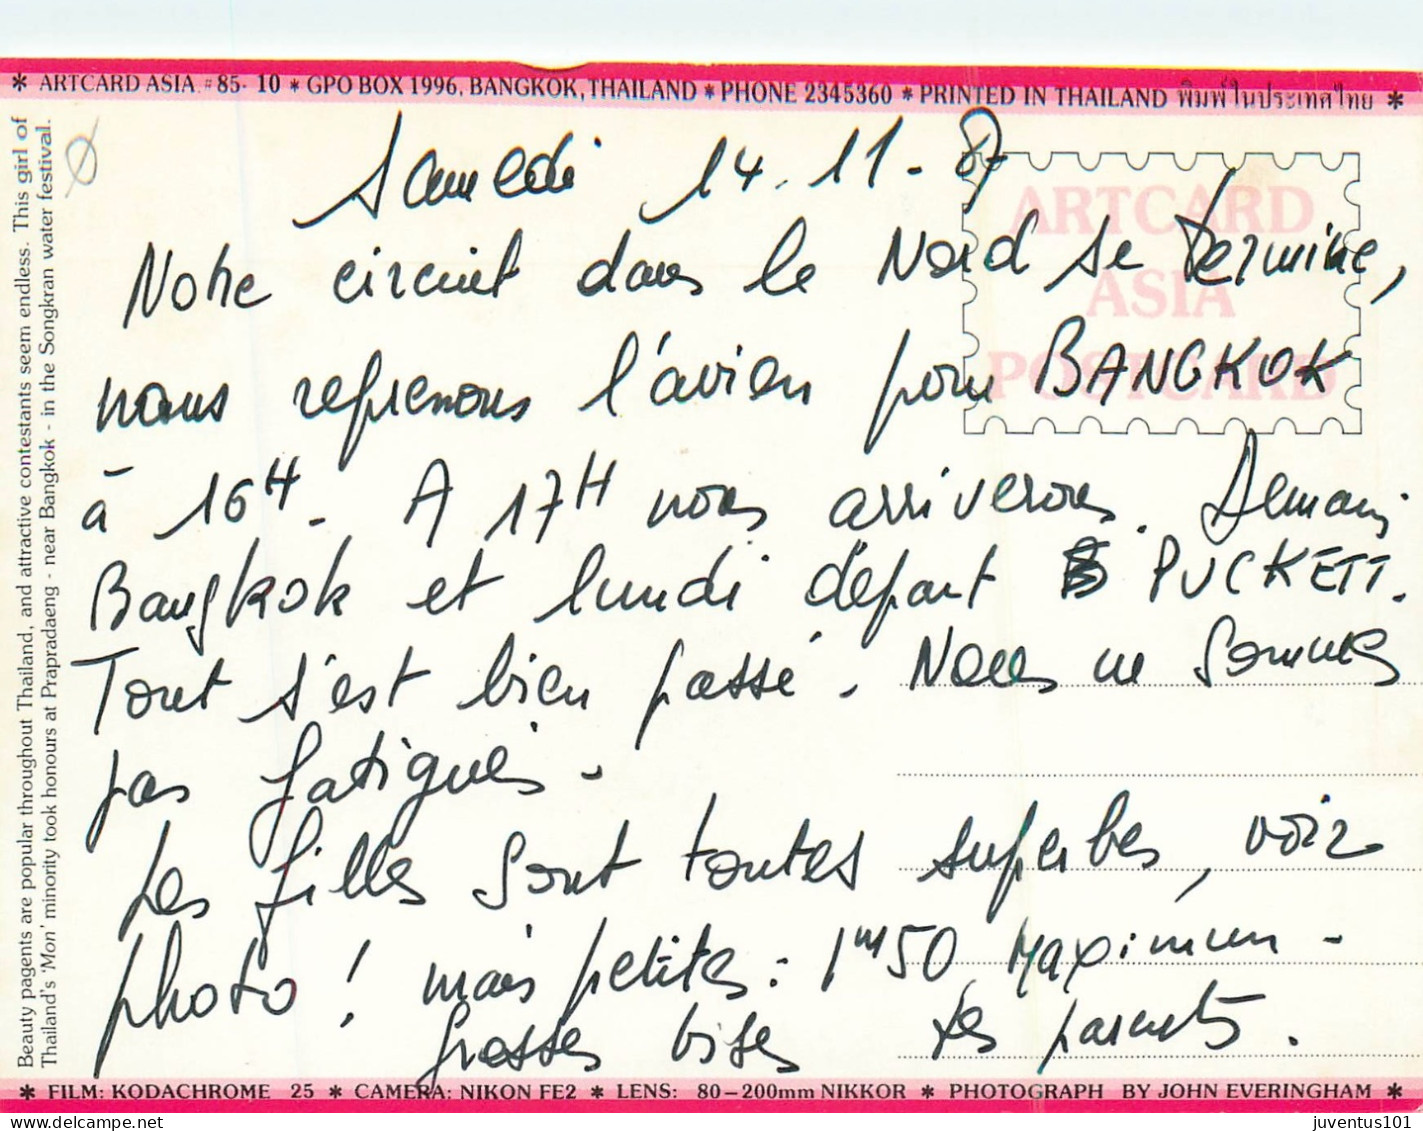 ✻ ARTCARD ASIA # 85- 10 ✻ GPO BOX 1996, BANGKOK, THAILAND ✻ PHONE 2345360 ✻ PRINTED IN THAILAND พิมพ์ในประเทศไทย ✻
Beauty pagents are popular throughout Thailand, and attractive contestants seem endless. This girl of
Thailand's 'Mon' minority took honours at Prapradaeng - near Bangkok - in the Songkran water festival.
ARTCARD
ASIA
POSTCARD
Samedi 14.11-87
Notre circuit dans le Nord se termine,
nous reprenons l'avion pour BANGKOK
à 16H. A 17H nous arriverons. Demain
Bangkok et lundi départ PUCKETT.
Tout s'est bien passé. Nous ne sommes
pas fatigués.
Les filles sont toutes superbes, voir
photo ! mais petites : 1m50 Maximum -
Grosses bises Les parents.
✻ FILM: KODACHROME 25 ✻ CAMERA: NIKON FE2 ✻ LENS: 80-200mm NIKKOR ✻ PHOTOGRAPH BY JOHN EVERINGHAM ✻
delcampe.net
juventus101